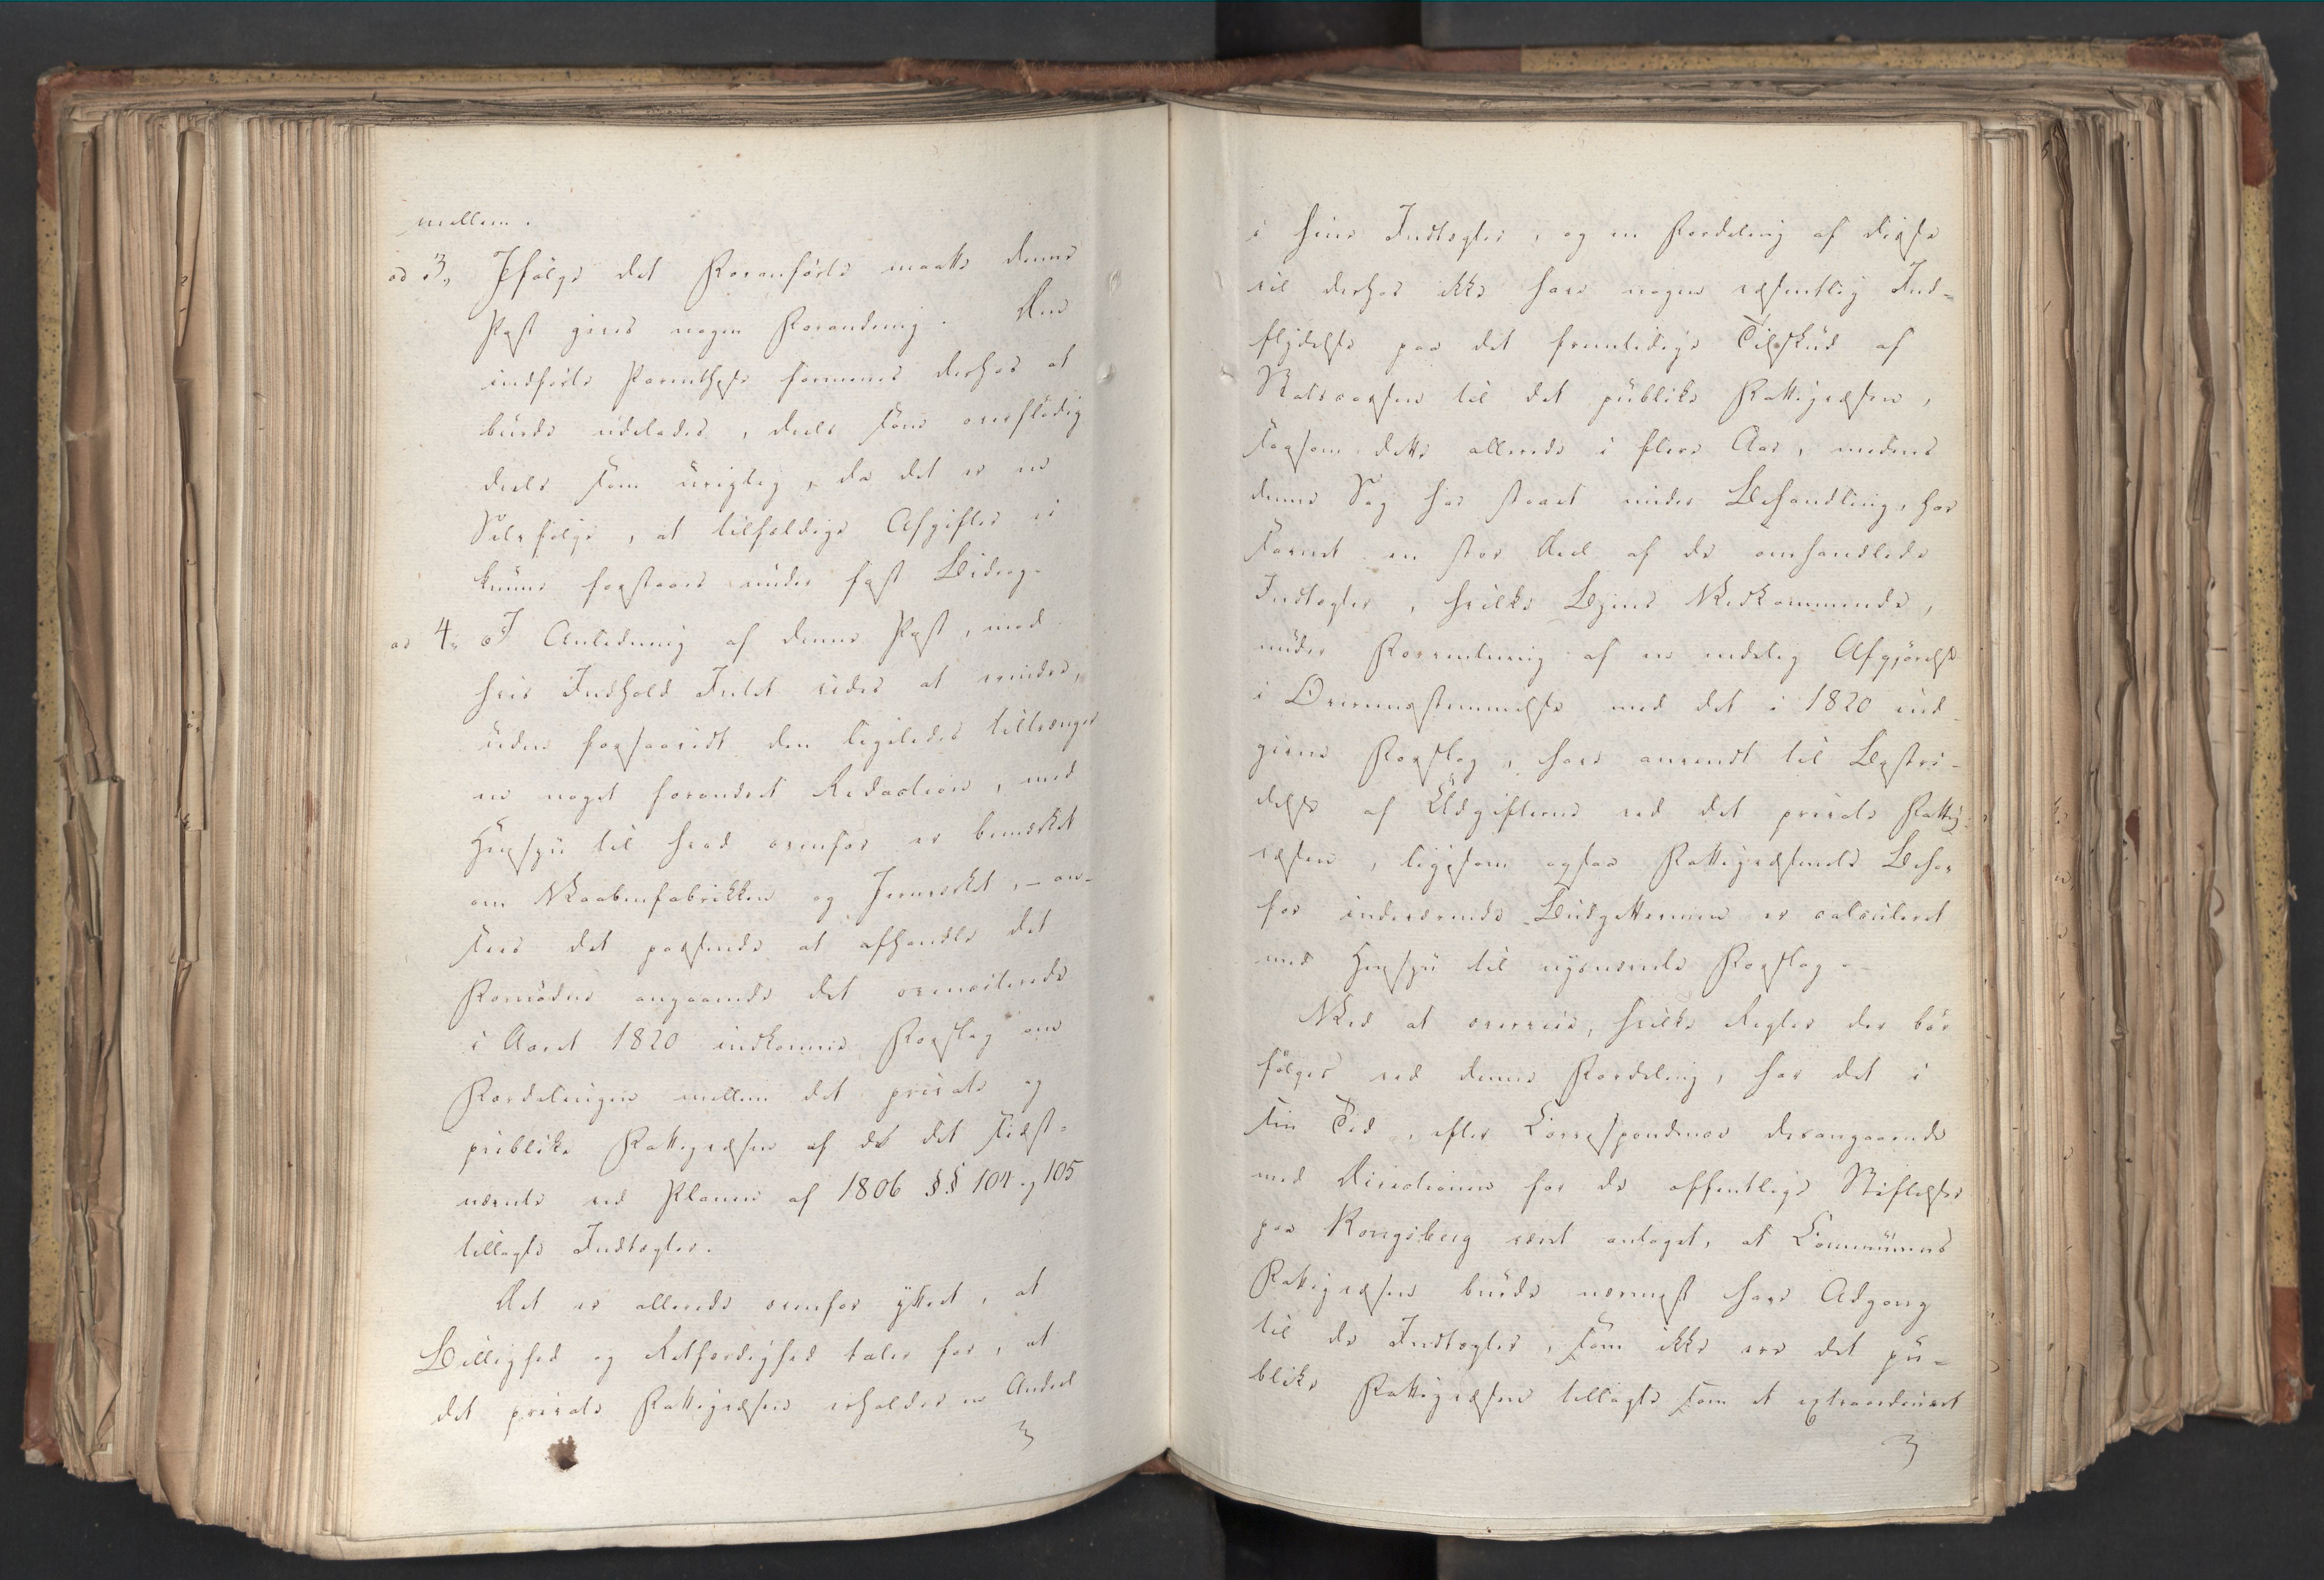 mellem.
ad 3, Ifølge det Foranførte maatte denne
Post gives nogen Forandring. Den
indførte Parenthese formenes derhos at
burde udelades, deels som overflødig
deels som urigtig, da det er en
Selvfølge, at tilfældige Afgifter ei
kunne forstaaes under fast Bidrag.
ad 4, I Anledning af denne Post, mod
hvis Indhold Intet vides at erindre,
uden forsaavidt den ligeledes tiltrænger
en noget forandret Redaction, med
Hensyn til hvad ovenfor er bemærket
om Vaabenfabrikken og Jernværket, - an-
sees det passende at afhandle det
Fornødne angaaende det ommeldende
i Aaret 1820 indkomne Forslag om
Fordelingen mellem det private og
publike Fattigvæsen af de det sidst-
nævnte ved Planen af 1806 §§ 104 og 105
tillagte Indtægter.
Det er allerede ovenfor yttret, at
Billighed og Retfærdighed taler for, at
det private Fattigvæsen erholder en Andeel
i hine Indtægter, og en Fordeling af disse
vil derhos ikke have nogen væsentlig Ind-
flydelse paa det fremtidige Tilskud af
Statscassen til det publike Fattigvæsen,
saasom dette allerede i flere Aar, medens
denne Sag har staaet under Behandling, har
savnet en stor Deel af de omhandlede
Indtægter, hvilke Byens Vedkommende,
under Forventning af en endelig Afgjørelse
i Overensstemmelse med det i 1820 ind-
givne Forslag, have anvendt til Bestri-
delse af Udgifterne ved det private Fattig-
væsen, ligesom ogsaa Fattigvæsenets Behov
for indeværende Budgettermin er calculeret
med Hensyn til nysnævnte Forslag.
Ved at overveie, hvilke Regler der bør
følges ved denne Fordeling, har det i
sin Tid, efter Correspondence desangaaende
med Directionen for de offentlige Stiftelser
paa Kongsberg været antaget, at Communens
Fattigvæsen burde nærmest have Adgang
til de Indtægter, som ikke ere det pu-
blike Fattigvæsen tillagte som et extraordinært